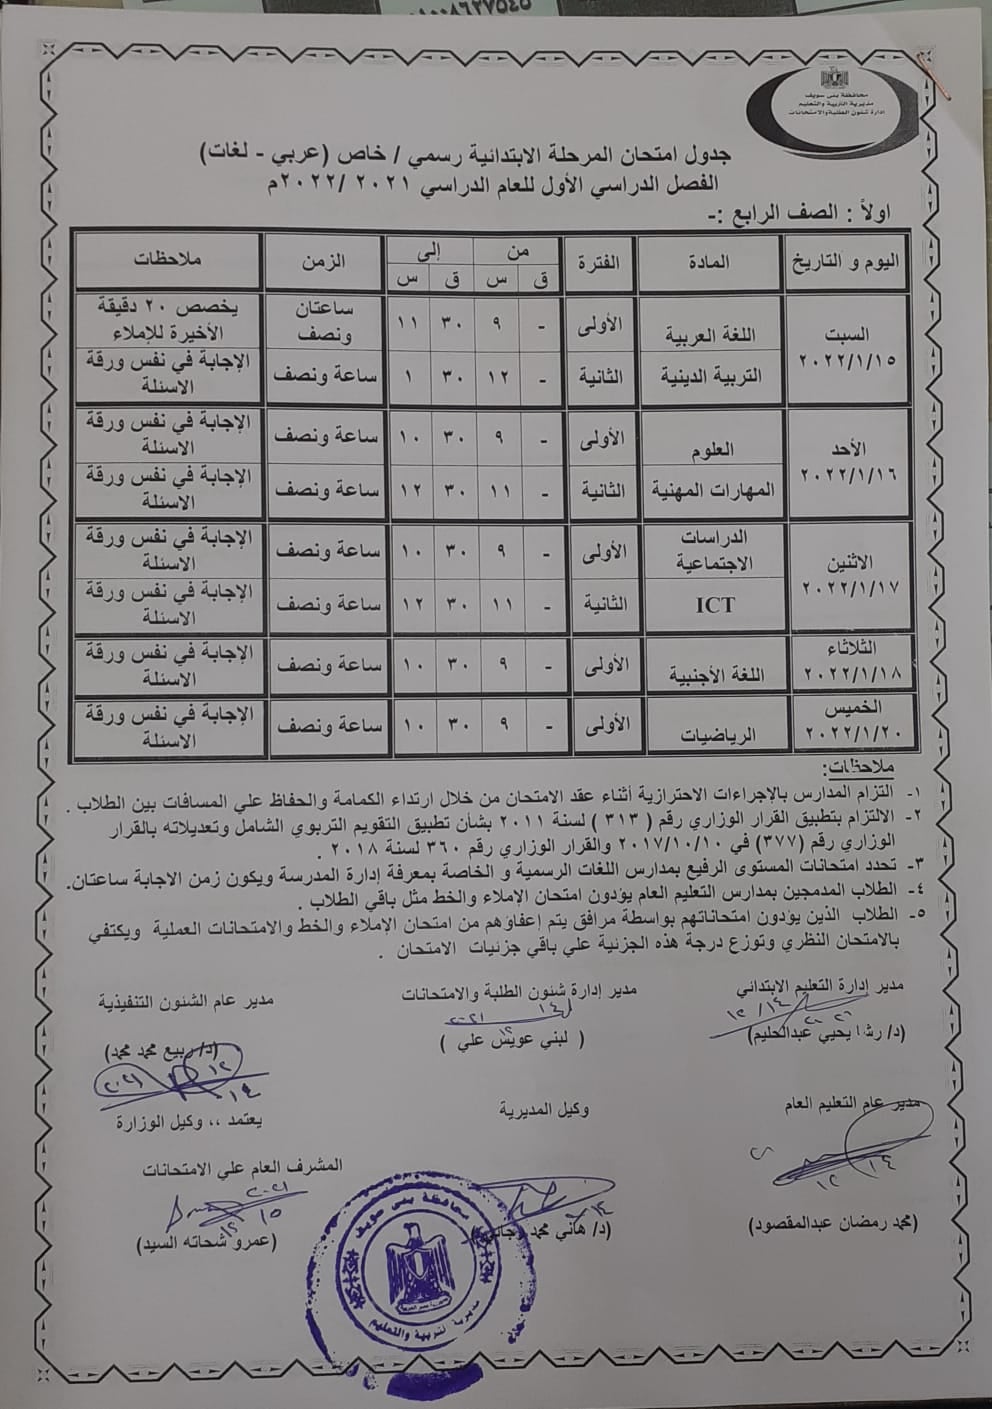 ٠١٠٠٨٦٣٧٥٤٥
محافظة بنى سويف
مديرية التربية والتعليم
ادارة شئون الطلبة والامتحانات
جدول امتحان المرحلة الابتدائية رسمي / خاص (عربي - لغات)
الفصل الدراسي الأول للعام الدراسي ٢٠٢١ /٢٠٢٢م
اولاً : الصف الرابع :-
اليوم و التاريخ المادة الفترة من إلي الزمن ملاحظات
ق س ق س
السبت ٢٠٢٢/١/١٥ اللغة العربية الأولى - ٩ ٣٠ ١١ ساعتان ونصف يخصص ٢٠ دقيقة الأخيرة للإملاء
التربية الدينية الثانية - ١٢ ٣٠ ١ ساعة ونصف الإجابة في نفس ورقة الاسئلة
الأحد ٢٠٢٢/١/١٦ العلوم الأولى - ٩ ٣٠ ١٠ ساعة ونصف الإجابة في نفس ورقة الاسئلة
المهارات المهنية الثانية - ١١ ٣٠ ١٢ ساعة ونصف الإجابة في نفس ورقة الاسئلة
الاثنين ٢٠٢٢/١/١٧ الدراسات الاجتماعية الأولى - ٩ ٣٠ ١٠ ساعة ونصف الإجابة في نفس ورقة الاسئلة
ICT الثانية - ١١ ٣٠ ١٢ ساعة ونصف الإجابة في نفس ورقة الاسئلة
الثلاثاء ٢٠٢٢/١/١٨ اللغة الأجنبية الأولى - ٩ ٣٠ ١٠ ساعة ونصف الإجابة في نفس ورقة الاسئلة
الخميس ٢٠٢٢/١/٢٠ الرياضيات الأولى - ٩ ٣٠ ١٠ ساعة ونصف الإجابة في نفس ورقة الاسئلة
ملاحظات:
١- التزام المدارس بالإجراءات الاحترازية أثناء عقد الامتحان من خلال ارتداء الكمامة والحفاظ علي المسافات بين الطلاب .
٢- الالتزام بتطبيق القرار الوزاري رقم ( ٣١٣ ) لسنة ٢٠١١ بشأن تطبيق التقويم التربوي الشامل وتعديلاته بالقرار
الوزاري رقم (٣٧٧) في ٢٠١٧/١٠/١٠ والقرار الوزاري رقم ٣٦٠ لسنة ٢٠١٨ .
٣- تحدد امتحانات المستوى الرفيع بمدارس اللغات الرسمية و الخاصة بمعرفة إدارة المدرسة ويكون زمن الاجابة ساعتان.
٤- الطلاب المدمجين بمدارس التعليم العام يؤدون امتحان الإملاء والخط مثل باقي الطلاب .
٥- الطلاب الذين يؤدون امتحاناتهم بواسطة مرافق يتم إعفاؤهم من امتحان الإملاء والخط والامتحانات العملية ويكتفي
بالامتحان النظري وتوزع درجة هذه الجزئية علي باقي جزئيات الامتحان .
مدير إدارة التعليم الابتدائي مدير إدارة شئون الطلبة والامتحانات مدير عام الشئون التنفيذية
(د/ رشا يحيي عبدالحليم) ( لبني عويس علي ) (د/ ربيع محمد محمد)
مدير عام التعليم العام وكيل المديرية يعتمد ،، وكيل الوزارة
المشرف العام علي الامتحانات
(محمد رمضان عبدالمقصود) (د/ هاني محمد) (عمرو شحاته السيد)
محافظة بنى سويف
مديرية التربية والتعليم